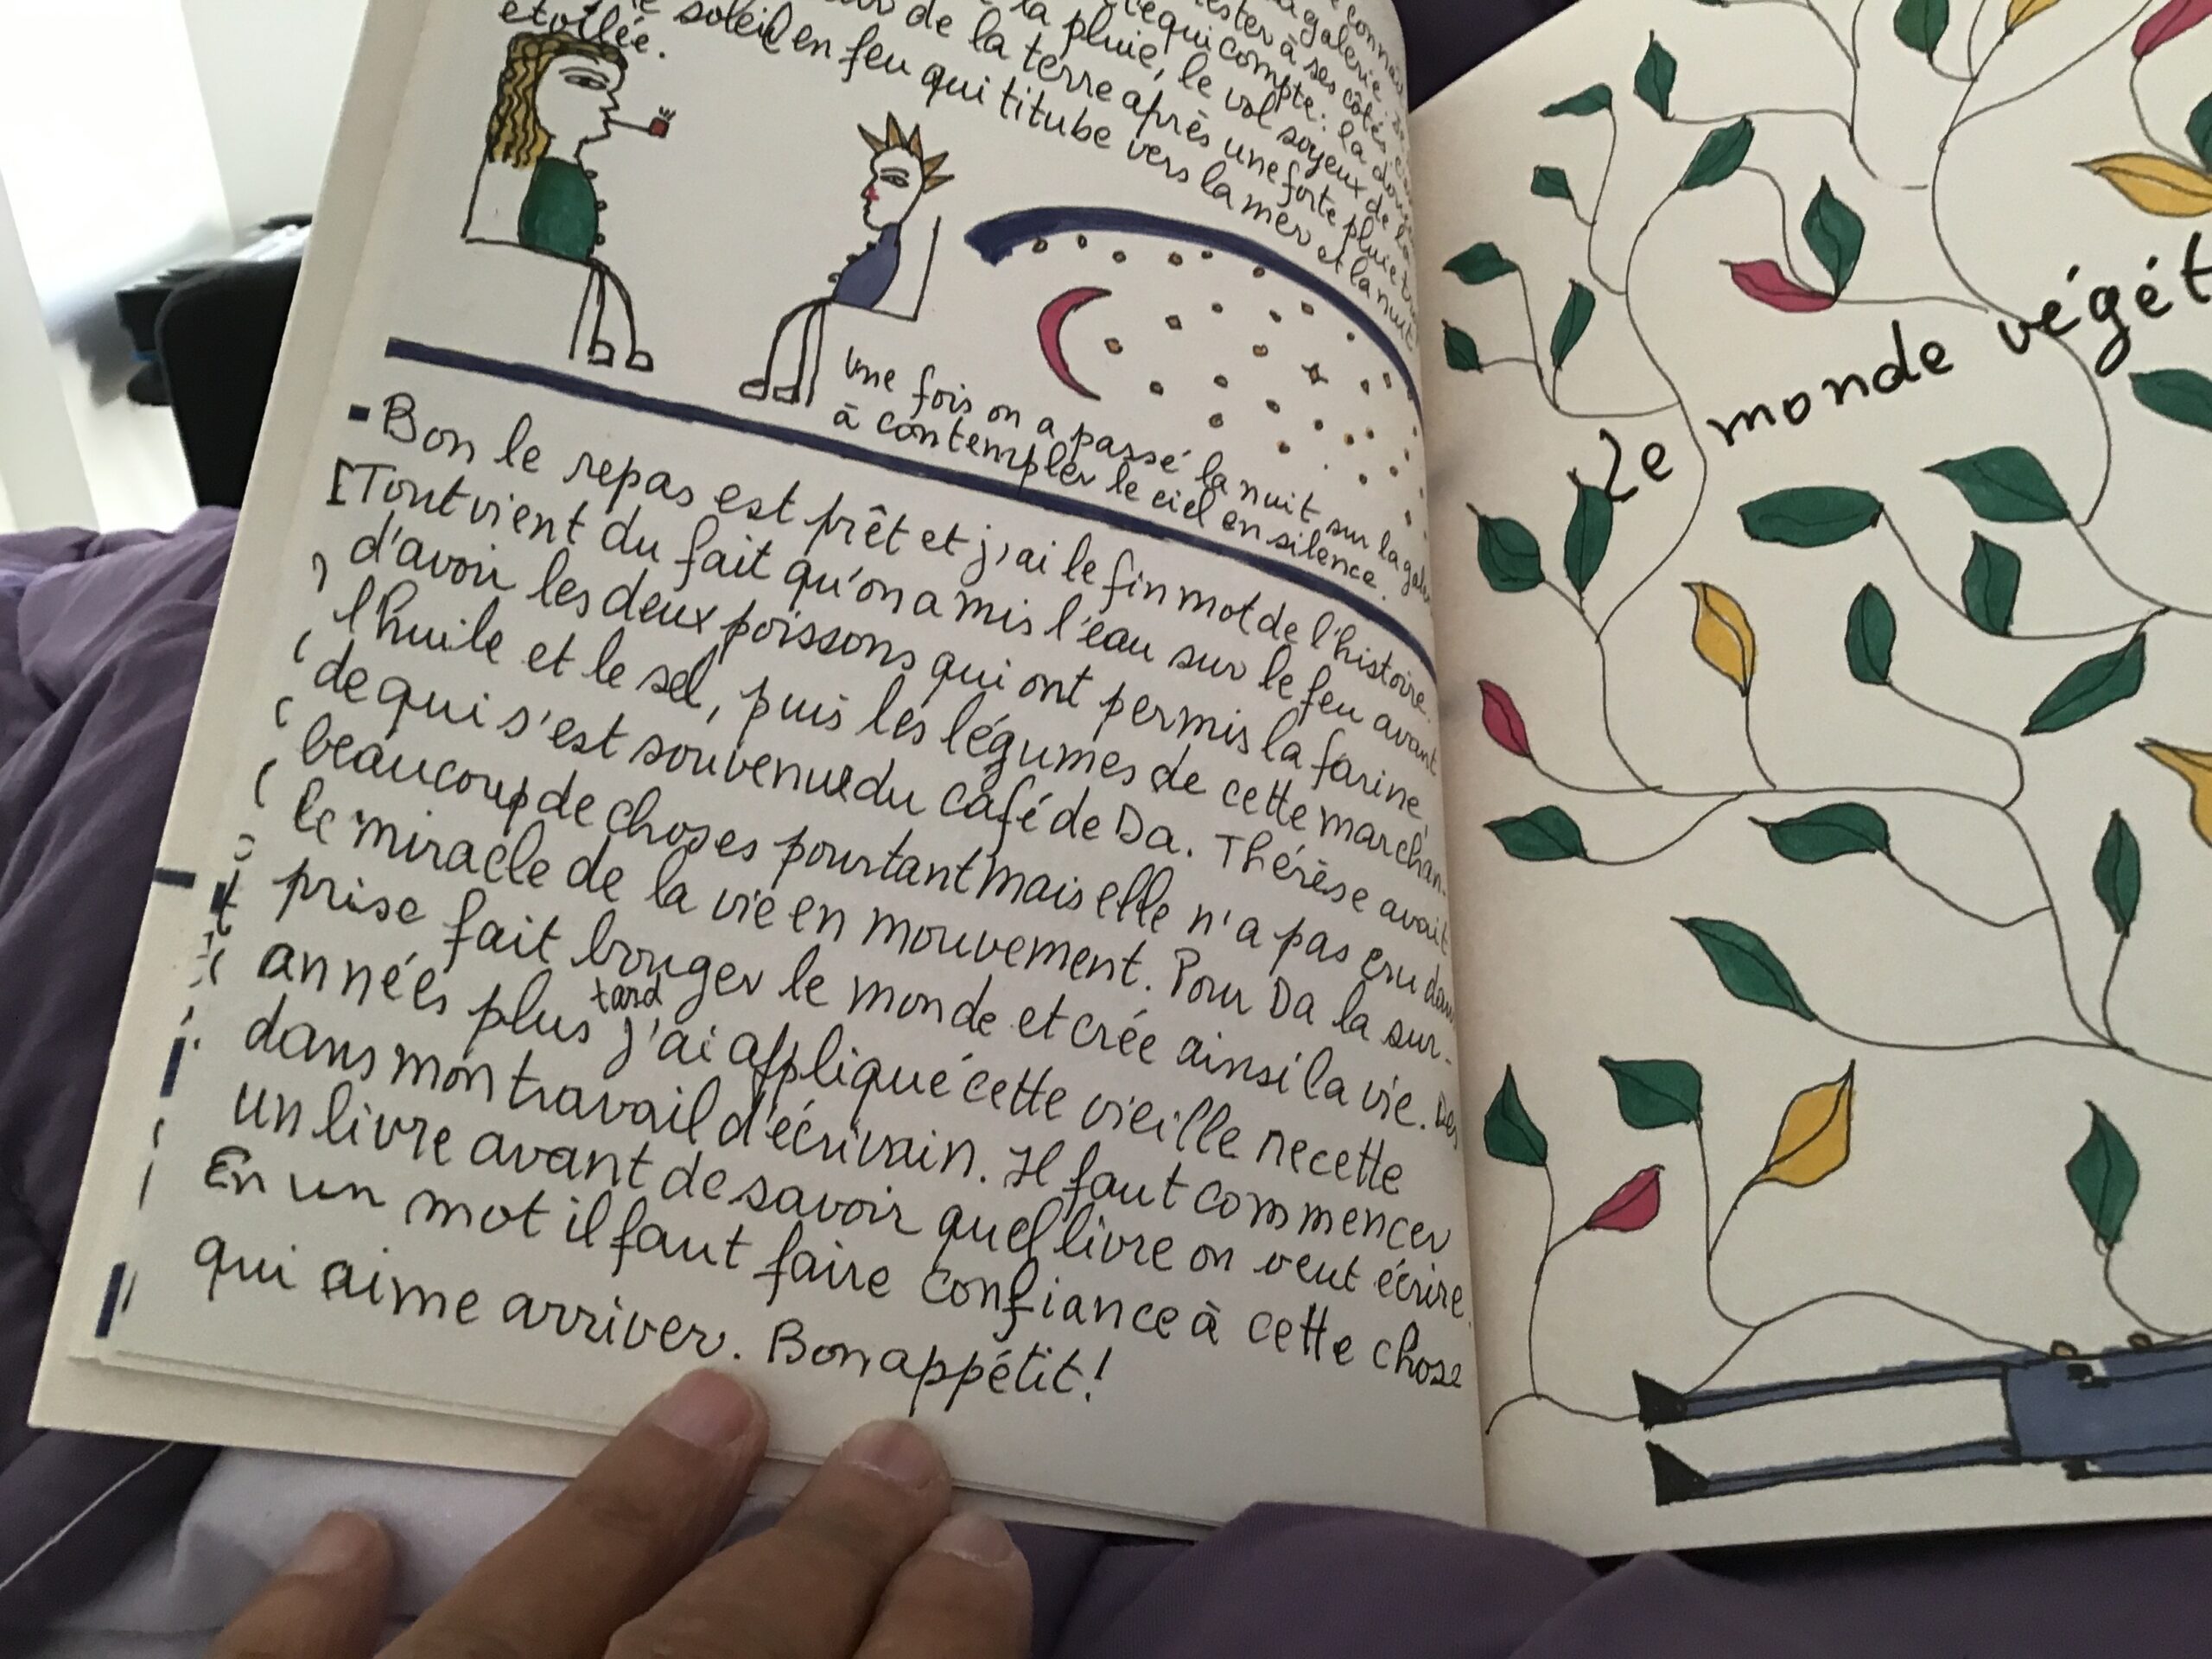 connais
la galerie
rester à ses côtés
ce qui compte: la
la pluie, le vol soyeux de
de la terre après une forte pluie
le soleil en feu qui titube vers la mer et la nuit
étoilée.
Une fois on a passé la nuit sur la
à contempler le ciel en silence.
- Bon le repas est prêt et j'ai le fin mot de l'histoire.
[Tout vient du fait qu'on a mis l'eau sur le feu avant
d'avoir les deux poissons qui ont permis la farine,
l'huile et le sel, puis les légumes de cette marchan-
de qui s'est souvenue du café de Da. Thérèse avait
beaucoup de choses pourtant mais elle n'a pas cru dans
le miracle de la vie en mouvement. Pour Da la sur-
prise fait bouger le monde et crée ainsi la vie. Des
années plus tard j'ai appliqué cette vieille recette
dans mon travail d'écrivain. Il faut commencer
un livre avant de savoir quel livre on veut écrire.
En un mot il faut faire confiance à cette chose
qui aime arriver. Bon appétit!
Le monde végét